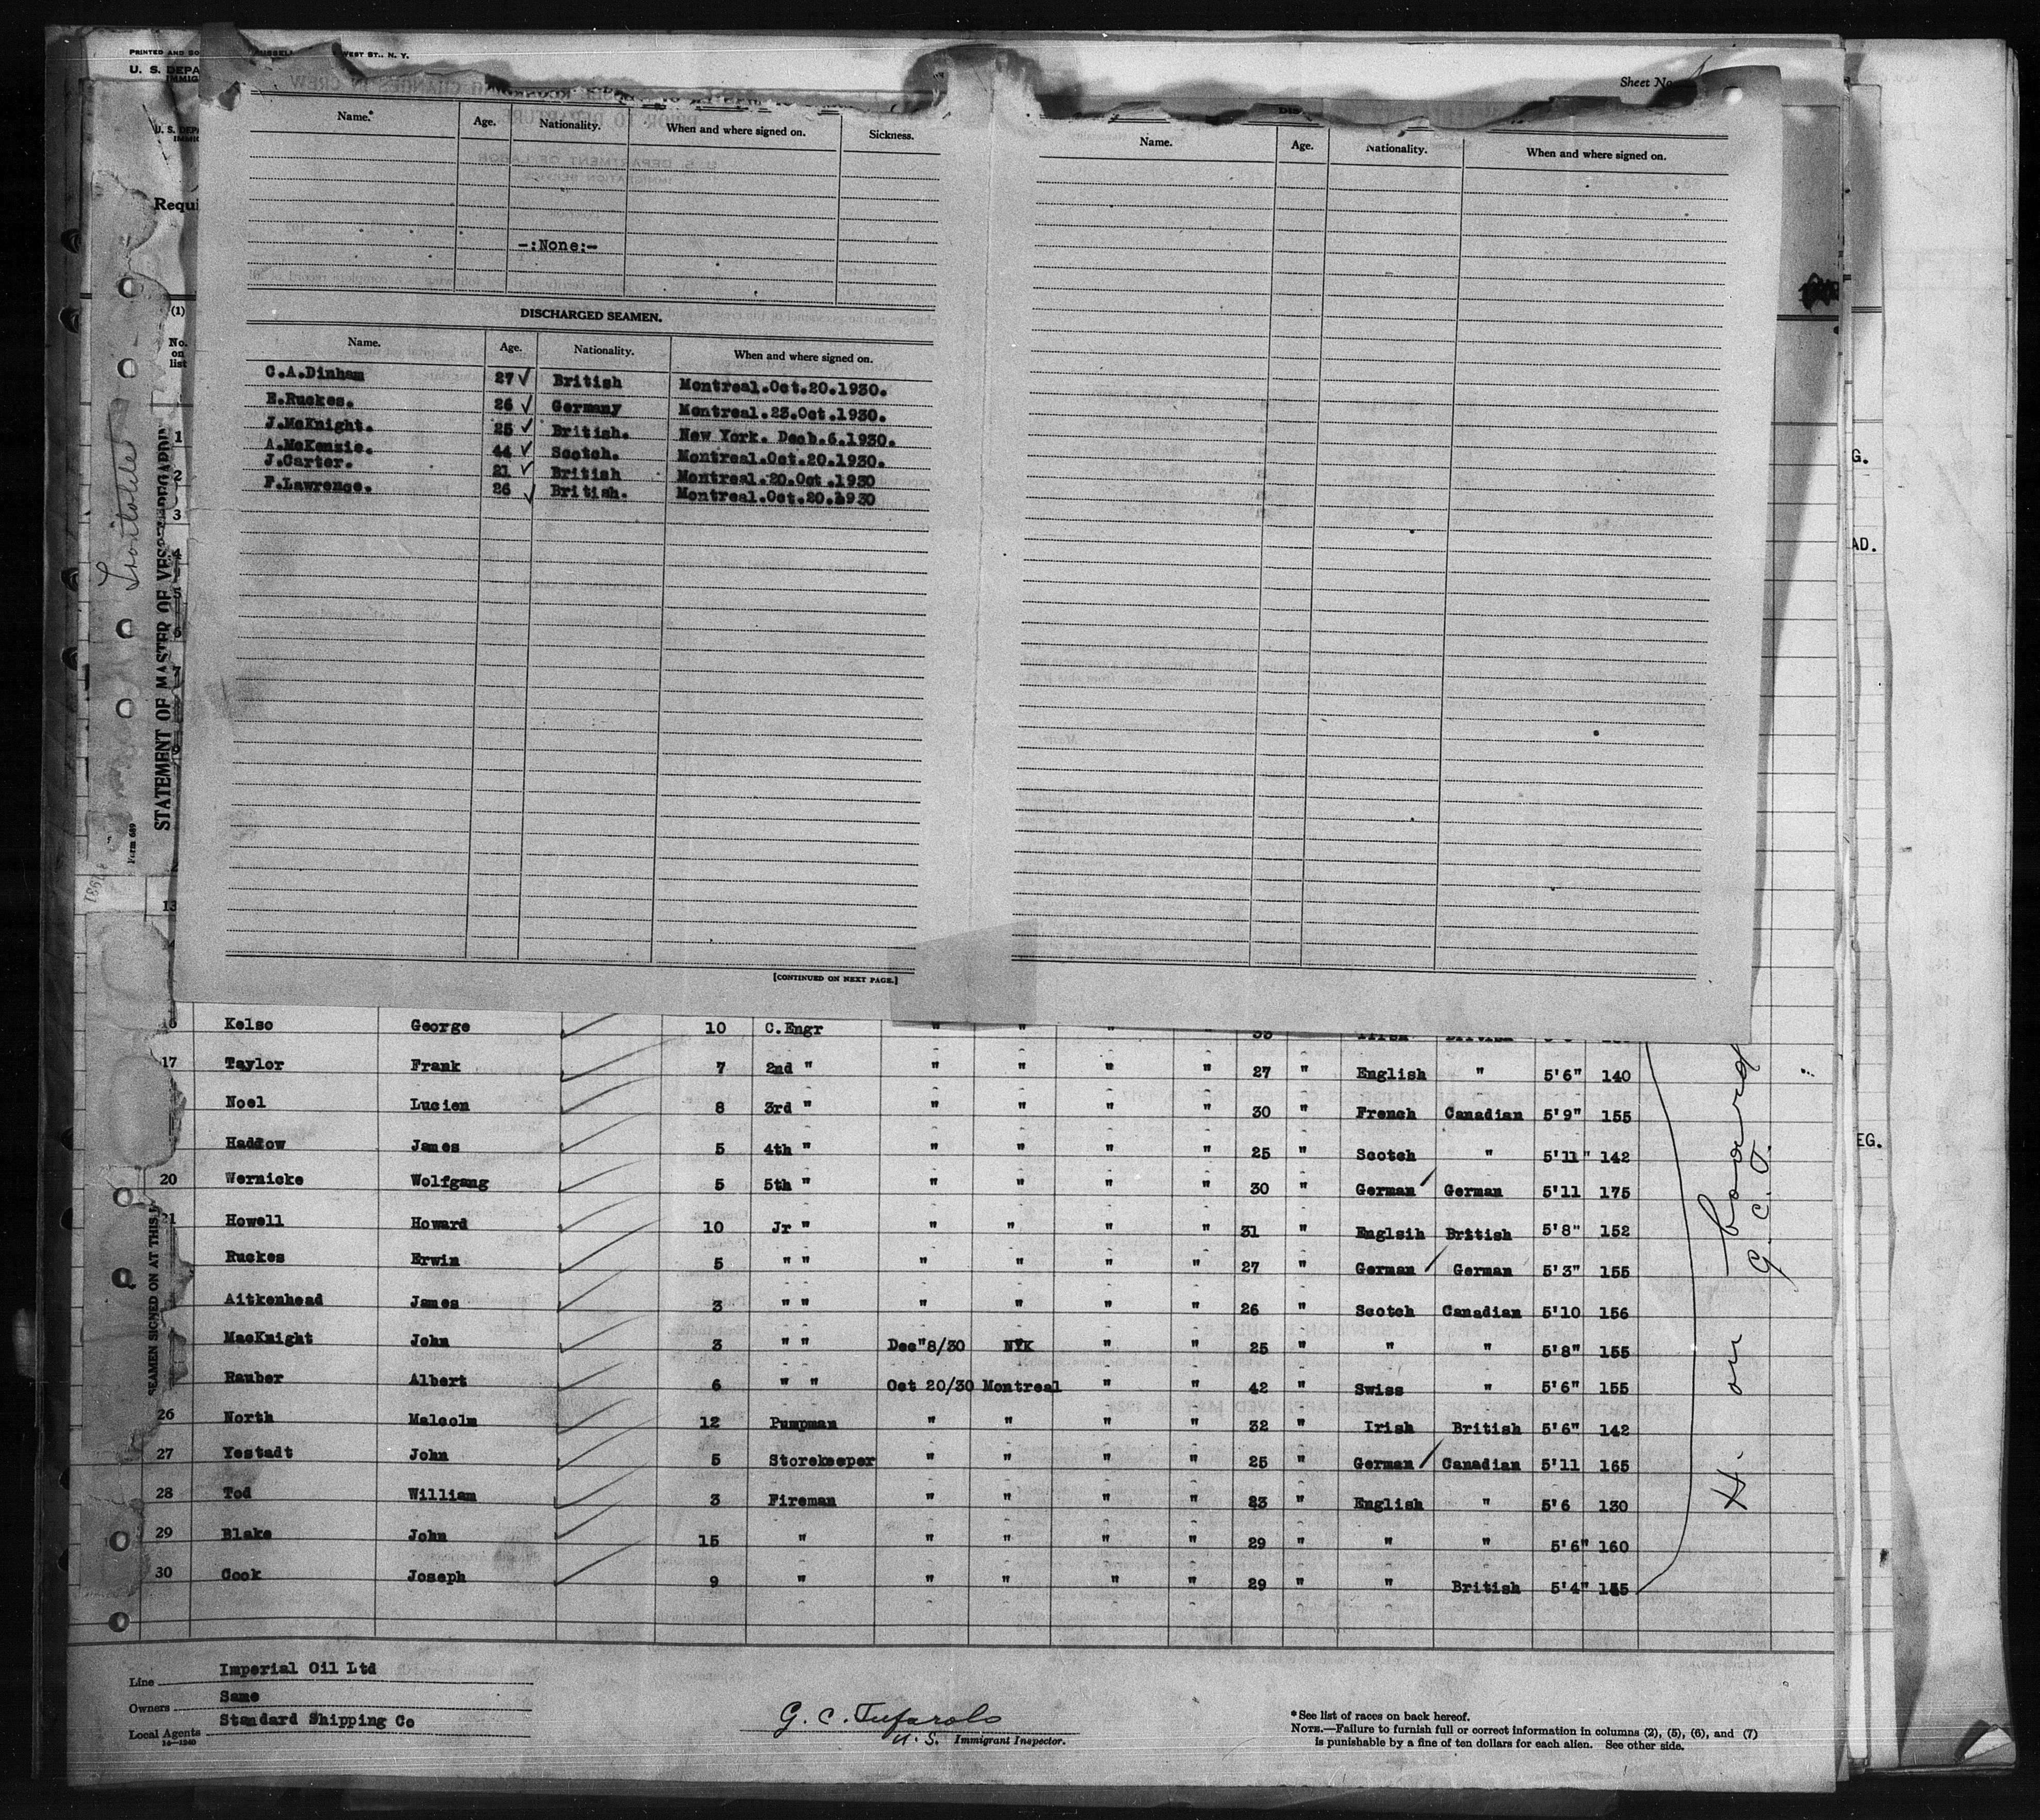 PRINTED AND SO
WEST ST., N. Y.
U. S. DEPA
IMMIG
Sheet No.
Requi
(1)
No. on list
STATEMENT OF MASTER OF VES
Form 689
Name. Age. Nationality. When and where signed on. Sickness.
-:None:-
DISCHARGED SEAMEN.
Name. Age. Nationality. When and where signed on.
C.A.Dinham 27 ✓ British Montreal.Oct.20.1930.
E.Ruckes. 26 ✓ Germany Montreal.23.Oct.1930.
J.McKnight. 25 ✓ British. New York. Decb.6.1930.
A.McKenzie. 44 ✓ Scotch. Montreal.Oct.20.1930.
J.Carter. 21 ✓ British Montreal.20.Oct.1930
F.Lawrence. 26 ✓ British. Montreal.Oct.20.1930
[CONTINUED ON NEXT PAGE.]
Name. Age. Nationality. When and where signed on.
G.
AD.
EG.
Kelso George 10 C.Engr " " " "
17 Taylor Frank 7 2nd " " " " " 27 " English " 5'6" 140
Noel Lucien 8 3rd " " " " " 30 " French Canadian 5'9" 155
Haddow James 5 4th " " " " " 25 " Scotch " 5'11" 142
20 Wernicke Wolfgang 5 5th " " " " " 30 " German German 5'11 175
21 Howell Howard 10 Jr " " " " " 31 " Englsih British 5'8" 152
Ruckes Erwin 5 " " " " " " 27 " German German 5'3" 155
Aitkenhead James 3 " " " " " " 26 " Scotch Canadian 5'10 156
MacKnight John 3 " " Dec"8/30 NYK " " 25 " " " 5'8" 155
Rauber Albert 6 " " Oct 20/30 Montreal " " 42 " Swiss " 5'6" 155
26 North Malcolm 12 Pumpman " " " " 32 " Irish British 5'6" 142
27 Yestadt John 5 Storekeeper " " " " 25 " German Canadian 5'11 165
28 Tod William 3 Fireman " " " " 23 " English " 5'6 130
29 Blake John 15 " " " " " 29 " " " 5'6" 160
30 Cook Joseph 9 " " " " " 29 " " British 5'4" 145
on board
G. C. T.
Line Imperial Oil Ltd
Owners Same
Local Agents Standard Shipping Co
14—1240
G. C. Tufarolo
U. S. Immigrant Inspector.
*See list of races on back hereof.
NOTE.—Failure to furnish full or correct information in columns (2), (5), (6), and (7)
is punishable by a fine of ten dollars for each alien. See other side.